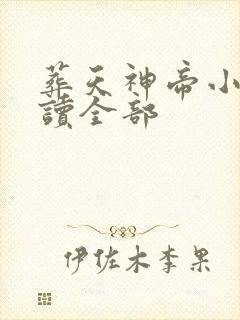 葬天神帝小
讀全部
伊佐木李果